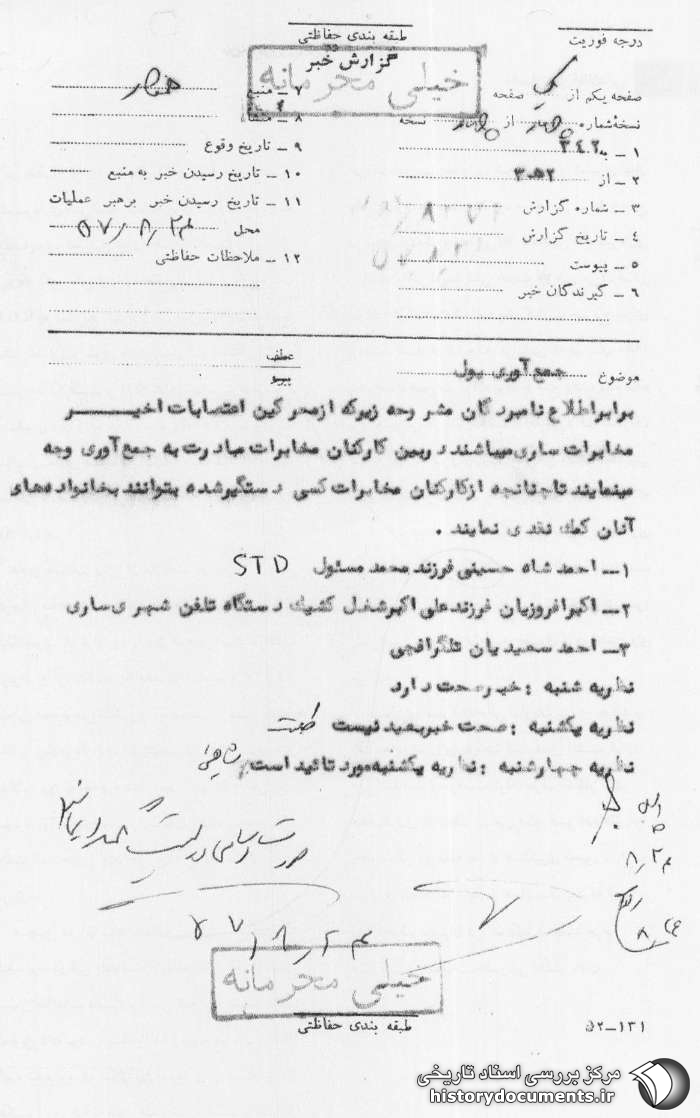 طبقه بندی حفاظتی
درجه فوریت
گزارش خبر
خیلی محرمانه
صفحه یکم از یک صفحه
نسخه شماره از نسخه
۱ ـ به ۳ﻫ۲
۲ ـ از ۳ﻫ۲
۳ ـ شماره گزارش
۴ ـ تاریخ گزارش
۵ ـ پیوست
۶ ـ گیرندگان خبر
۷ ـ منبع
۸ ـ منشاء
۹ ـ تاریخ وقوع
۱۰ ـ تاریخ رسیدن خبر به منبع
۱۱ ـ تاریخ رسیدن خبر برهبر عملیات
محل ۵۷/۸/۲۴
۱۲ ـ ملاحظات حفاظتی
موضوع جمع‌آوری پول
عطف
پیرو
برابر اطلاع نامبردگان مشروحه زیر که از محرکین اعتصابات اخیــــر
مخابرات ساری میباشند در بین کارکنان مخابرات مبادرت به جمع‌آوری وجه
مینمایند تا چنانچه از کارکنان مخابرات کسی دستگیر شده بتوانند بخانواده‌های
آنان کمک نقدی نمایند .
۱ــ احمد شاه حسینی فرزند محمد مسئول STD
۲ــ اکبر افروزیان فرزند علی اکبر شغل کشیک دستگاه تلفن شهری ساری
۳ــ احمد سعیدیان تلگرافچی
نظریه شنبه : خبر صحت دارد
نظریه یکشنبه : صحت خبر بعید نیست
نظریه چهارشنبه : نظریه یکشنبه مورد تائید است
۸/۲۴
۵۷/۸/۲۴
خیلی محرمانه
طبقه بندی حفاظتی
۵۲ــ۱۳۱
مرکز بررسی اسناد تاریخی
historydocuments.ir